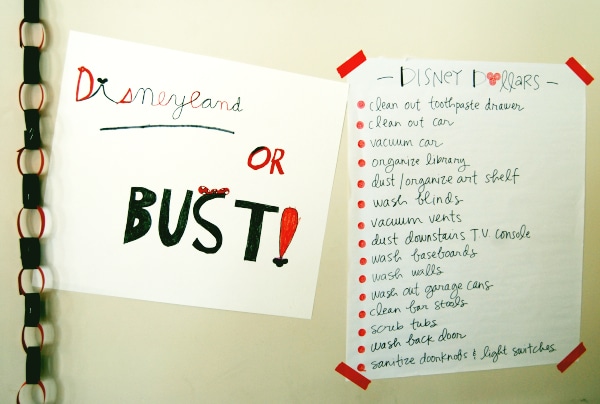 Disneyland
OR
BUST!
- DISNEY DOllARS -
clean out toothpaste drawer
clean out car
vacuum car
organize library
dust/organize art shelf
wash blinds
vacuum vents
dust downstairs TV console
wash baseboards
wash walls
wash out garage cans
clean bar stools
scrub tubs
wash back door
sanitize doorknobs & light switches